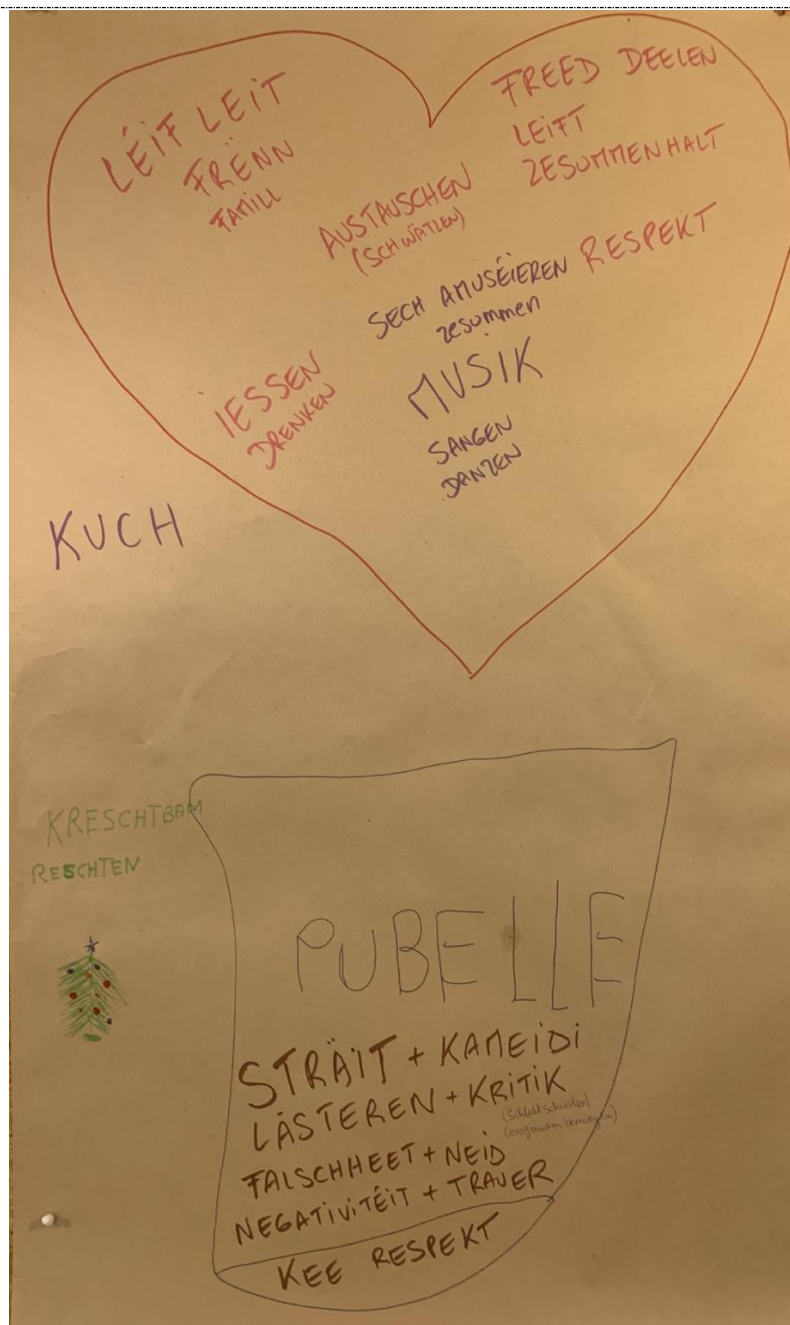 LÉIF LEIT
FRËNN
FAMILL
FREED DEELEN
LEIFT
ZESUMMENHALT
AUSTAUSCHEN
(SCHWÄTZEN)
RESPEKT
SECH AMUSÉIEREN
zesummen
MUSIK
SANGEN
DANZEN
IESSEN
DRENKEN
KUCH
KRESCHTBAM
RESCHTEN
PUBELLE
STRÄIT + KAMEIDI
LÄSTEREN + KRITIK
FALSCHHEET + NEID
NEGATIVITÉIT + TRAUER
KEE RESPEKT